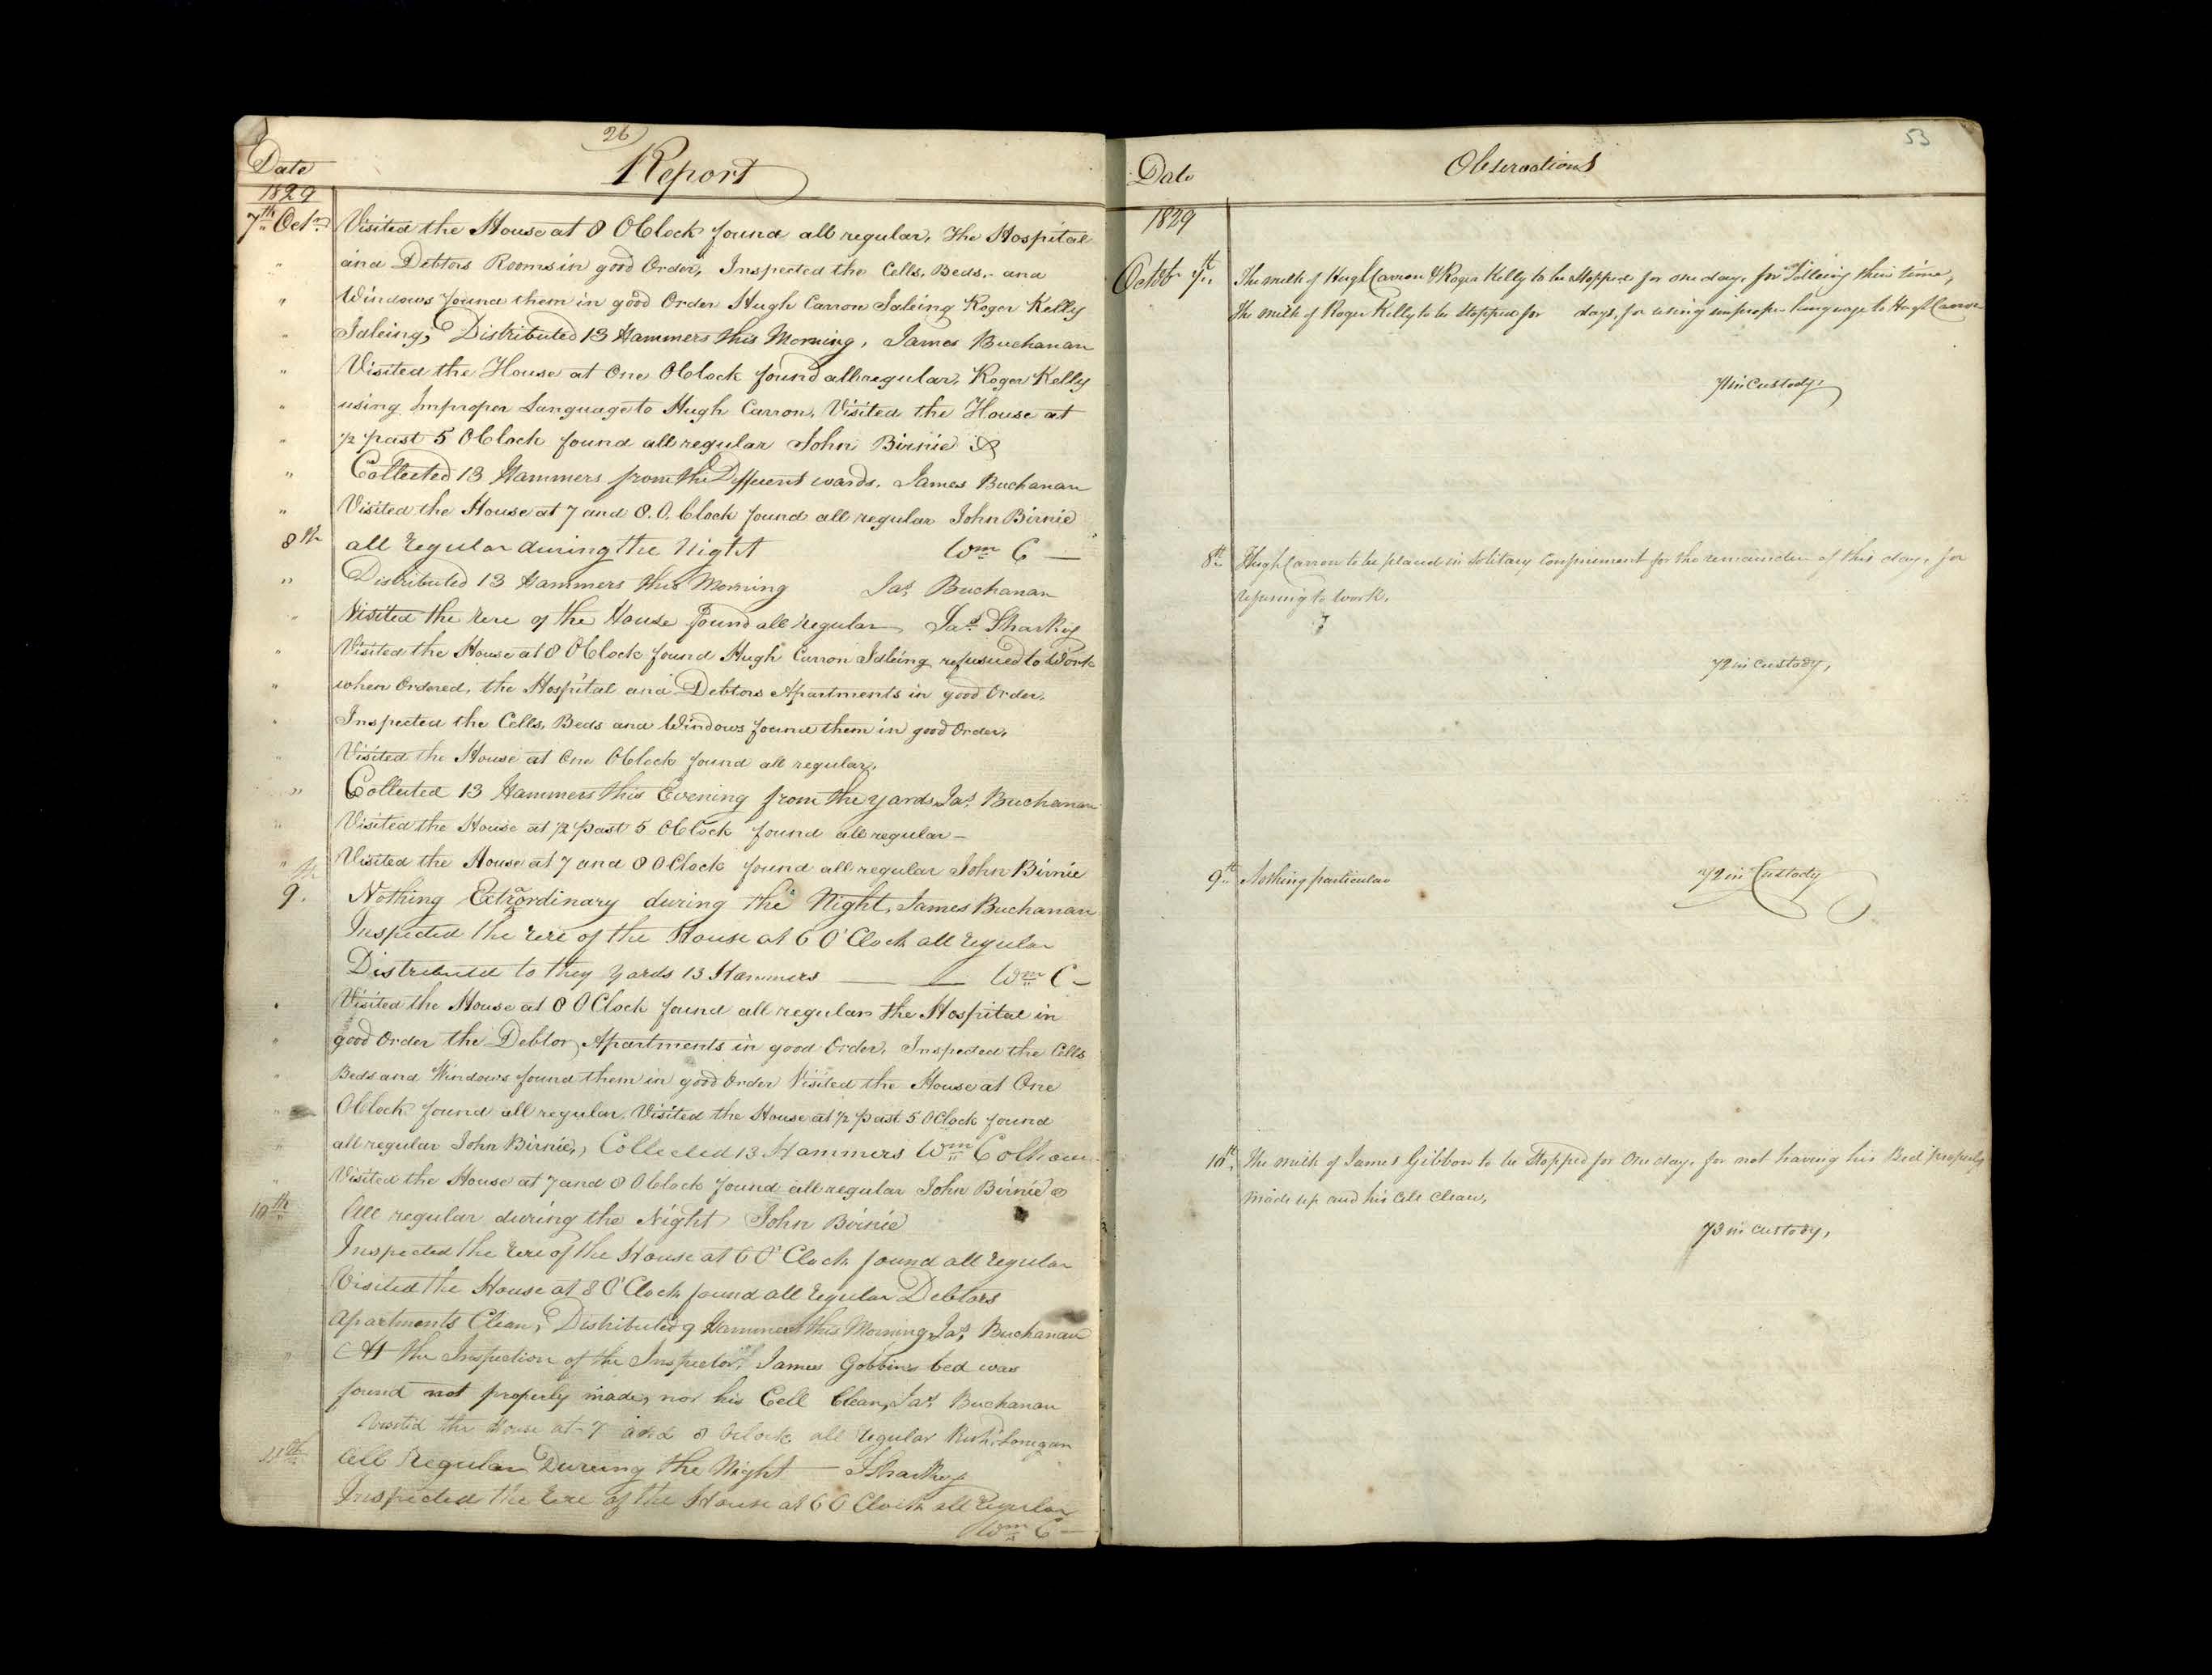 26
Date
Report
1829
7th Octr Visited the House at 8 OClock found all regular, The Hospital
" and Debtors Rooms in good Order, Inspected the Cells, Beds, and
" Windows found them in good Order Hugh Carron Idleing Roger Kelly
" Idleing; Distributed 13 Hammers this Morning, James Buchanan
" Visited the House at One OClock found all regular, Roger Kelly
" using Improper Language to Hugh Carron, Visited the House at
" ½ past 5 OClock found all regular John Birnie
" Collected 13 Hammers from the Different wards. James Buchanan
" Visited the House at 7 and 8.O.Clock found all regular John Birnie
8th all regular during the Night Wm C —
" Distributed 13 Hammers this Morning Jas Buchanan
" Visited the rere of the House found all regular Jas Sharkey
" Visited the House at 8 OClock found Hugh Carron Idleing refusued to Work
" when Ordered, the Hospital and Debtors Apartments in good Order.
" Inspected the Cells, Beds and Windows found them in good Order,
" Visited the House at One OClock found all regular,
" Collected 13 Hammers this Evening from the yards Jas Buchanan
" Visited the House at ½ past 5 OClock found all regular —
" Visited the House at 7 and 8 OClock found all regular John Birnie
9th Nothing Extraordinary during the Night, James Buchanan
Inspected the rere of the House at 6 O'Clock all regular
Distributed to they yards 13 Hammers — — Wm C —
" Visited the House at 8 OClock found all regular the Hospital in
" good Order the Debtor Apartments in good Order, Inspected the Cells
" Beds and Windows found them in good Order Visited the House at One
" OClock found all regular. Visited the House at ½ past 5 OClock found
" all regular John Birnie, Collected 13 Hammers Wm Colhoun
" Visited the House at 7 and 8 OClock found all regular John Birnie
10th All regular during the Night John Birnie
Inspected the rere of the House at 6 O'Clock found all regular
Visited the House at 8 O'Clock found all regular Debtors
Apartments Clean, Distributed 9 Hammers this Morning Jas Buchanan
" At the Inspection of the Inspector, James Gobbins bed was
found not properly made, nor his Cell Clean, Jas Buchanan
Visited the House at 7 and 8 Oclock all regular Richd Lonigan
11th All Regular Dureing the Night — J Sharkey
Inspected the rere of the House at 6 O Clock all regular
Wm C —
53
Date
Observations
1829
Octob 7th The milk of Hugh Carron & Roger Kelly to be Stopped for one day, for Idleing their time,
The milk of Roger Kelly to be Stopped for days, for using improper language to Hugh Carron
71 in Custody,
8th Hugh Carron to be placed in Solitary Confinement for the remainder of this day, for
refusing to work.
72 in Custody,
9th Nothing particular 72 in Custody
10th The milk of James Gibbon to be Stopped for One day, for not having his Bed properly
made up and his Cell Clean,
73 in Custody,